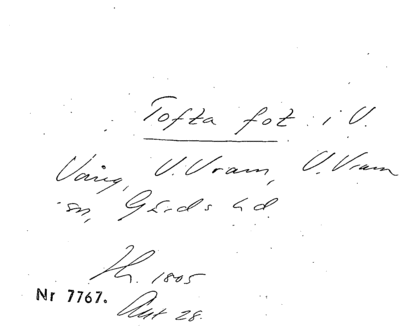 Tofta fot i V.
Vång, V. Vram, V. Vram
sn, Gärds hd.
Th. 1805
Nr 7767.
Akt 28.